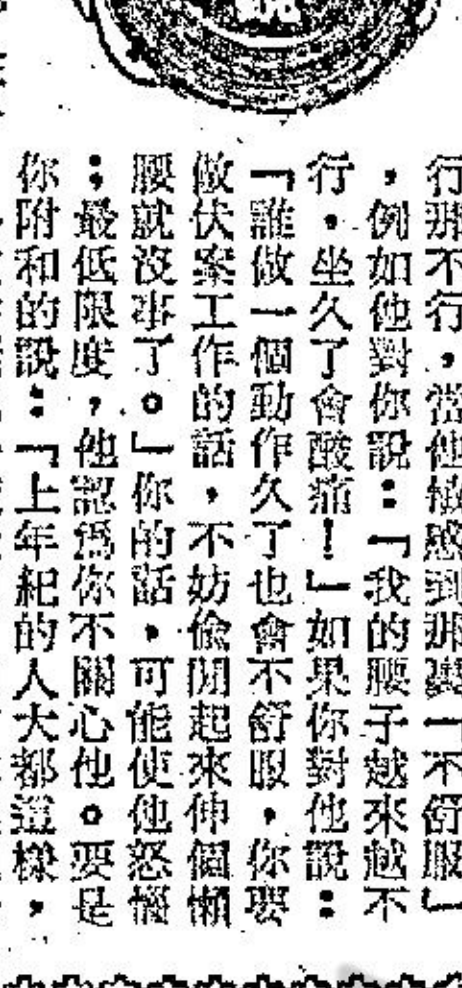 行那不行，當他敏感到那裏「不舒服」
，例如他對你說：「我的腰子越來越不
行，坐久了會酸痛！」如果你對他說：
「誰做一個動作久了也會不舒服，你要
做伏案工作的話，不妨偸閒起來伸個懶
腰就沒事了。」你的話，可能使他怒惱
；最低限度，他認爲你不關心他。要是
你附和的說：「上年紀的人大都這樣，